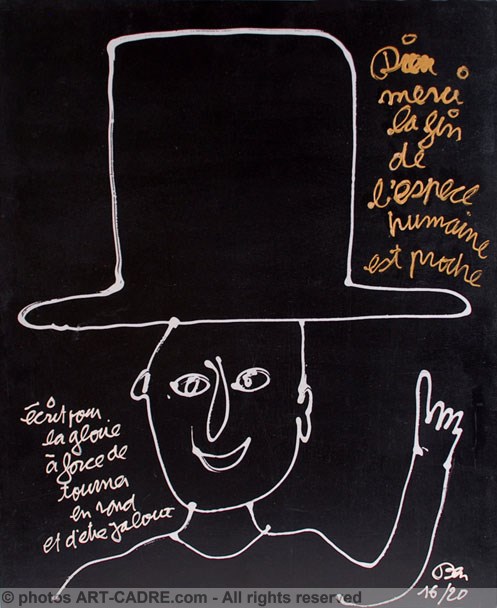 Dieu
merci
la fin
de
l'espece
humaine
est proche
écrit pour
la gloire
à force de
tourner
en rond
et d'etre jaloux
Ben
16/20
© photos ART-CADRE.com - All rights reserved